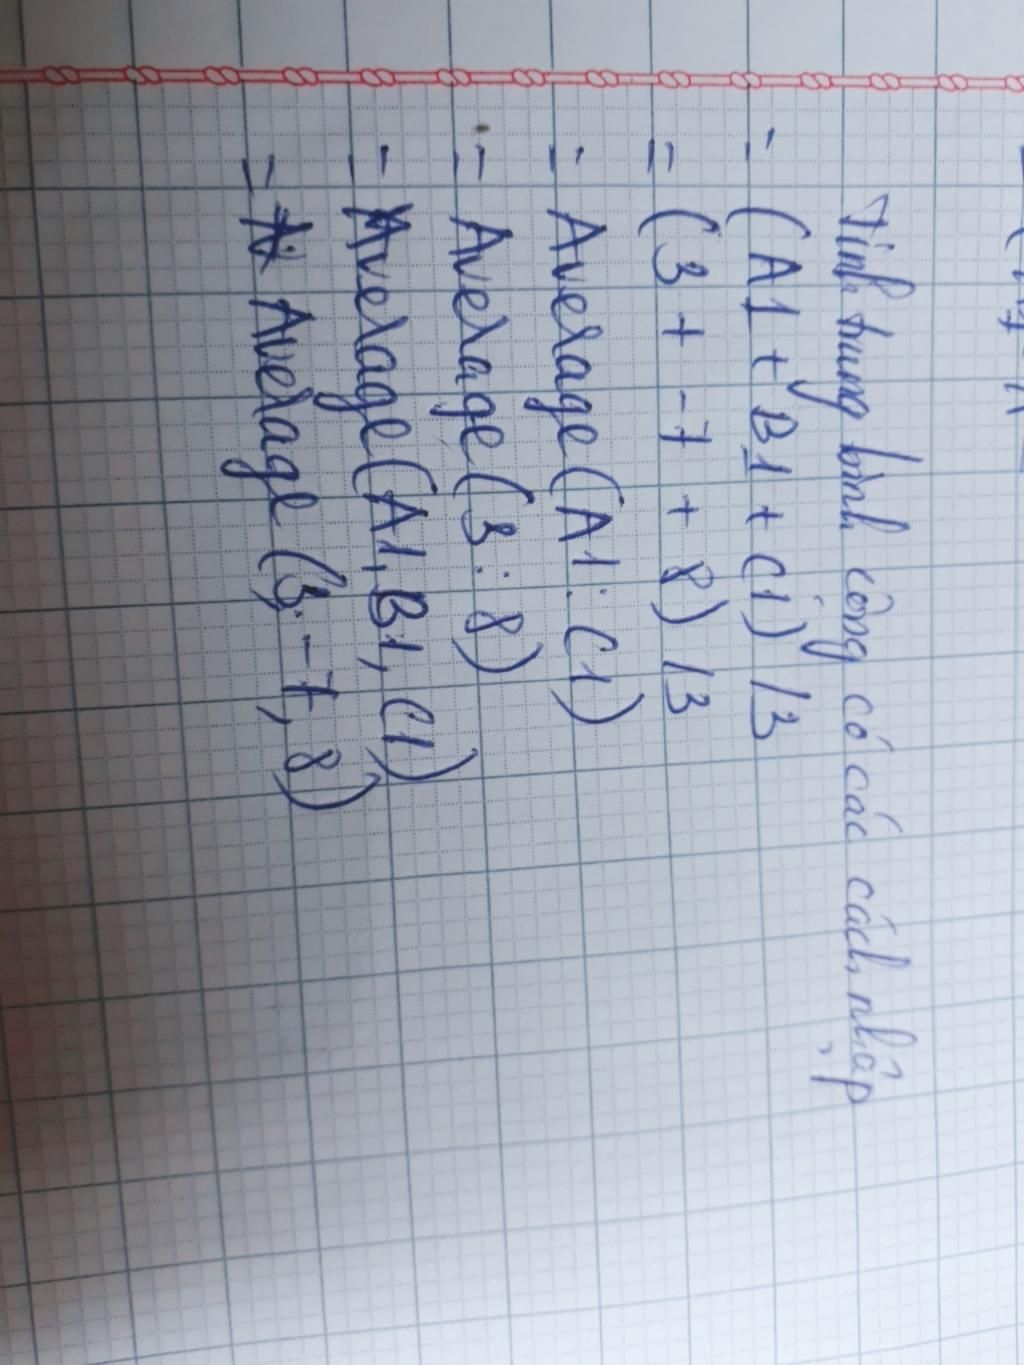 Tính trung bình cộng có các cách nhập
= (A1 + B1 + C1) /3
= (3 + -7 + 8) /3
= Average (A1 : C1)
= Average (3 : 8)
= Average (A1, B1, C1)
= Average (3, -7, 8)